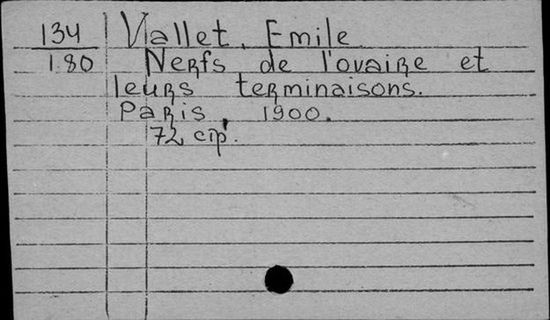 134
180
Vallet, Emile
Nerfs de l'ovaire et
leurs terminaisons.
Paris, 1900.
72 стр.